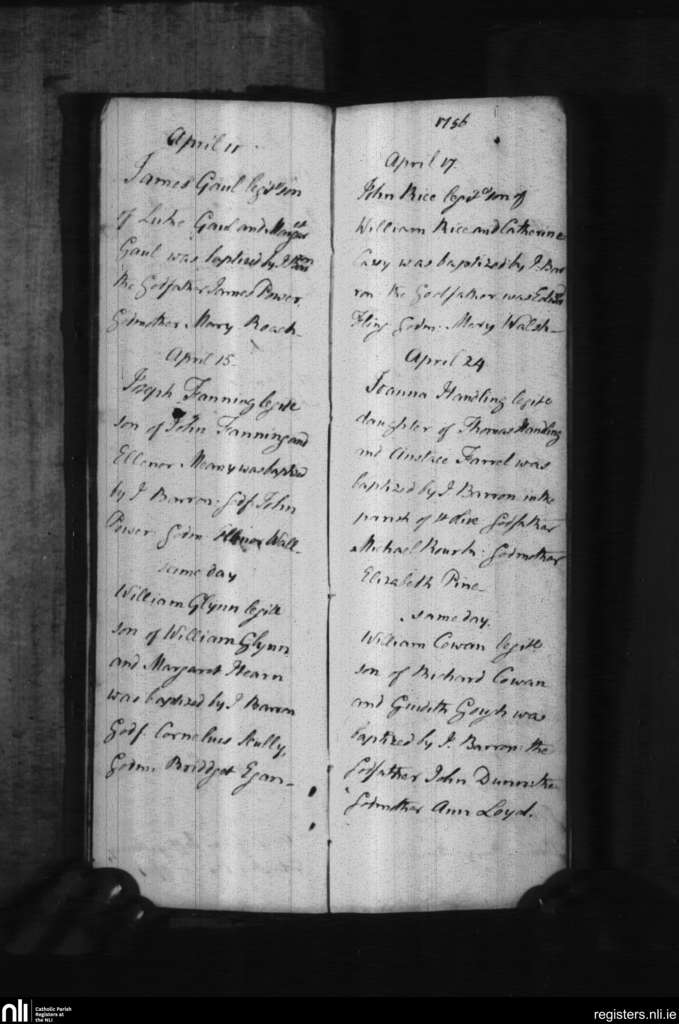 April 11
James Gaul legitte son
of Luke Gaul and Margret
Gaul was baptized by J: Barron
the Godfather James Power
Godmother Mary Roach
April 15
Joseph Fanning legitte
son of John Fanning and
Ellenor Meany was baptized
by J Barron: Godf: John
Power: Godm: Wall
same day
William Glynn legitte
son of William Glynn
and Margaret Hearn
was baptized by J Barron
Godf. Cornelius Scully,
Godm: Bridget Egan
1756
April 17
John Rice legitte son of
William Rice and Catherine
Casey was baptized by J: Bar
ron the Godfather was
Fling Godm: Mary Walsh
April 24
Joanna Handling legitte
daughter of Thomas Handling
and Anstice Farrel was
baptized by J Barron in the
parish of St Godfather
Michael Bourk: Godmother
Elizabeth Pine
same day.
William Cowan legitte
son of Richard Cowan
and Giudith Gough was
baptized by J: Barron the
Godfather John Dunn the
Godmother Ann Loyd.
nli Catholic Parish
Registers at
the NLI
registers.nli.ie